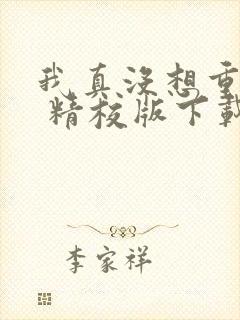 我真没想重
精校版下载
李家祥